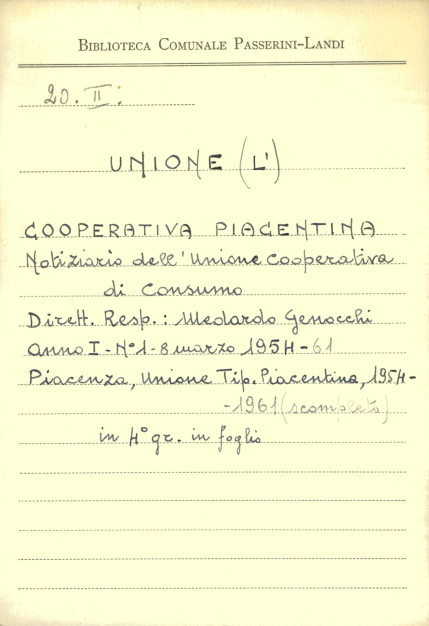 BIBLIOTECA COMUNALE PASSERINI-LANDI
20. II:
UNIONE (L')
COOPERATIVA PIACENTINA
Notiziario dell'Unione Cooperativa
di Consumo
Dirett. Resp.: Medardo Genocchi
Anno I - N° 1 - 8 marzo 1954 - 61
Piacenza, Unione Tip. Piacentina, 1954-
-1961 (scompleto)
in 4° gr. in foglio